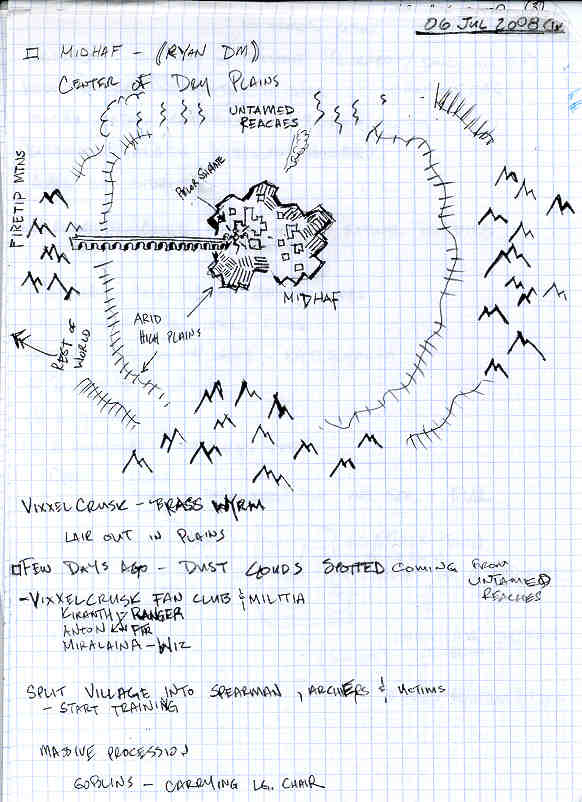 (31)
06 JUL 2008
MIDHAF - (RYAN DM)
CENTER OF DRY PLAINS
UNTAMED
REACHES
FIRETIP MTNS
MIDHAF
ARID
HIGH PLAINS
REST OF
WORLD
VIXXELCRUSK - BRASS WYRM
LAIR OUT IN PLAINS
FEW DAYS AGO - DUST CLOUDS SPOTTED COMING FROM
UNTAMED
REACHES
- VIXXELCRUSK FAN CLUB & MILITIA
RANGER
ANTON
MIRALAINA - WIZ
SPLIT VILLAGE INTO SPEARMAN, ARCHERS & VICTIMS
- START TRAINING
MASSIVE PROCESSION
GOBLINS - CARRYING LG. CHAIR